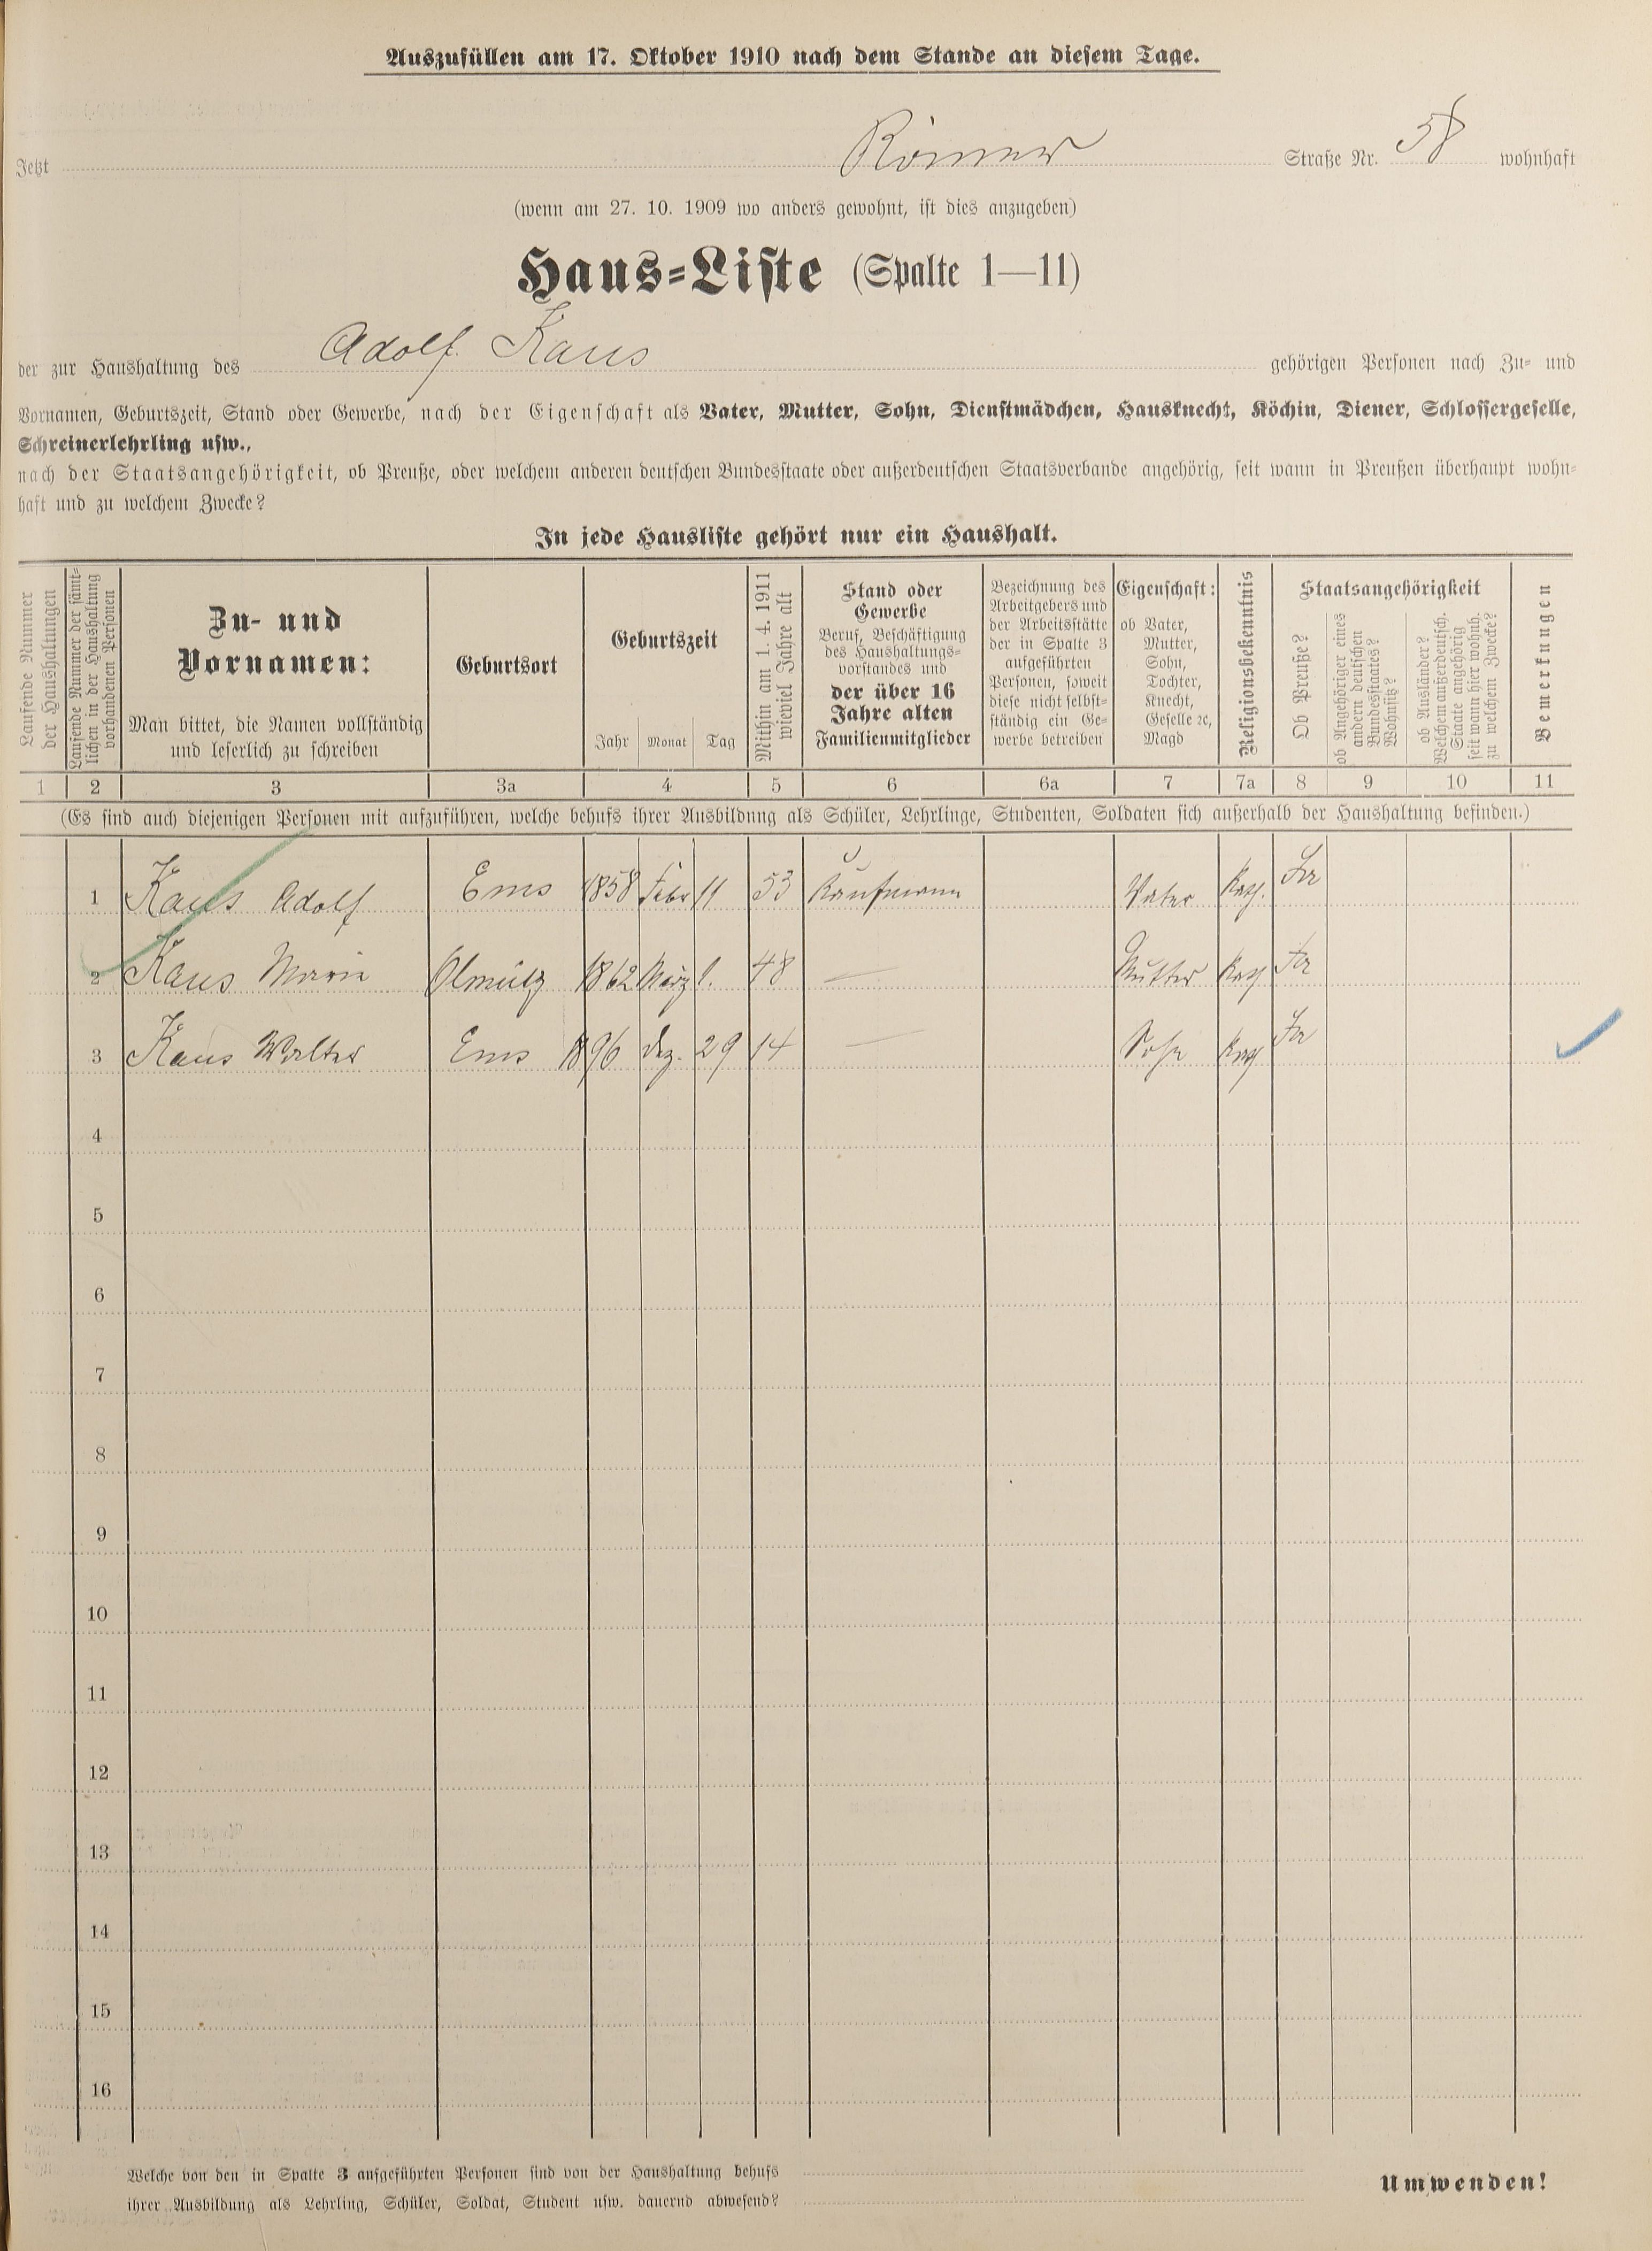 Auszufüllen am 17. Oktober 1910 nach dem Stande an diesem Tage.
Jetzt Römer Straße Nr. 58 wohnhaft
(wenn am 27. 10. 1909 wo anders gewohnt, ist dies anzugeben)
Haus-Liste (Spalte 1—11)
der zur Haushaltung des Adolf Kaus gehörigen Personen nach Zu- und
Vornamen, Geburtszeit, Stand oder Gewerbe, nach der Eigenschaft als Vater, Mutter, Sohn, Dienstmädchen, Hausknecht, Köchin, Diener, Schlossergeselle,
Schreinerlehrling usw.,
nach der Staatsangehörigkeit, ob Preuße, oder welchem anderen deutschen Bundesstaate oder außerdeutschen Staatsverbande angehörig, seit wann in Preußen überhaupt wohn-
haft und zu welchem Zwecke?
In jede Hausliste gehört nur ein Haushalt.
Laufende Nummer
der Haushaltungen
Laufende Nummer der sämt-
lichen in der Haushaltung
vorhandenen Personen
Zu- und
Vornamen:
Man bittet, die Namen vollständig
und leserlich zu schreiben
Geburtsort
Geburtszeit
Jahr Monat Tag
Mithin am 1. 4. 1911
wieviel Jahre alt
Stand oder
Gewerbe
Beruf, Beschäftigung
des Haushaltungs-
vorstandes und
der über 16
Jahre alten
Familienmitglieder
Bezeichnung des
Arbeitgebers und
der Arbeitsstätte
der in Spalte 3
aufgeführten
Personen, soweit
diese nicht selbst-
ständig ein Ge-
werbe betreiben
Eigenschaft:
ob Vater,
Mutter,
Sohn,
Tochter,
Knecht,
Geselle ꝛc,
Magd
Religionsbekenntnis
Staatsangehörigkeit
Ob Preuße?
ob Angehöriger eines
andern deutschen
Bundesstaates?
Wohnsitz?
ob Ausländer?
Welchem außerdeutsch.
Staate angehörig
seit wann hier wohnh.
zu welchem Zwecke?
Bemerkungen
1 2 3 3a 4 5 6 6a 7 7a 8 9 10 11
(Es sind auch diejenigen Personen mit aufzuführen, welche behufs ihrer Ausbildung als Schüler, Lehrlinge, Studenten, Soldaten sich außerhalb der Haushaltung befinden.)
1 Kaus Adolf Ems 1858 Febr 11 53 Kaufmann Vater Kath. Ja
2 Kaus Maria Olmütz 1862 März 1. 48 — Mutter Kath Ja
3 Kaus Walter Ems 1896 Dez. 29 14 — Sohn Kath Ja
4
5
6
7
8
9
10
11
12
13
14
15
16
Welche von den in Spalte 3 aufgeführten Personen sind von der Haushaltung behufs
ihrer Ausbildung als Lehrling, Schüler, Soldat, Student usw. dauernd abwesend?
Umwenden!